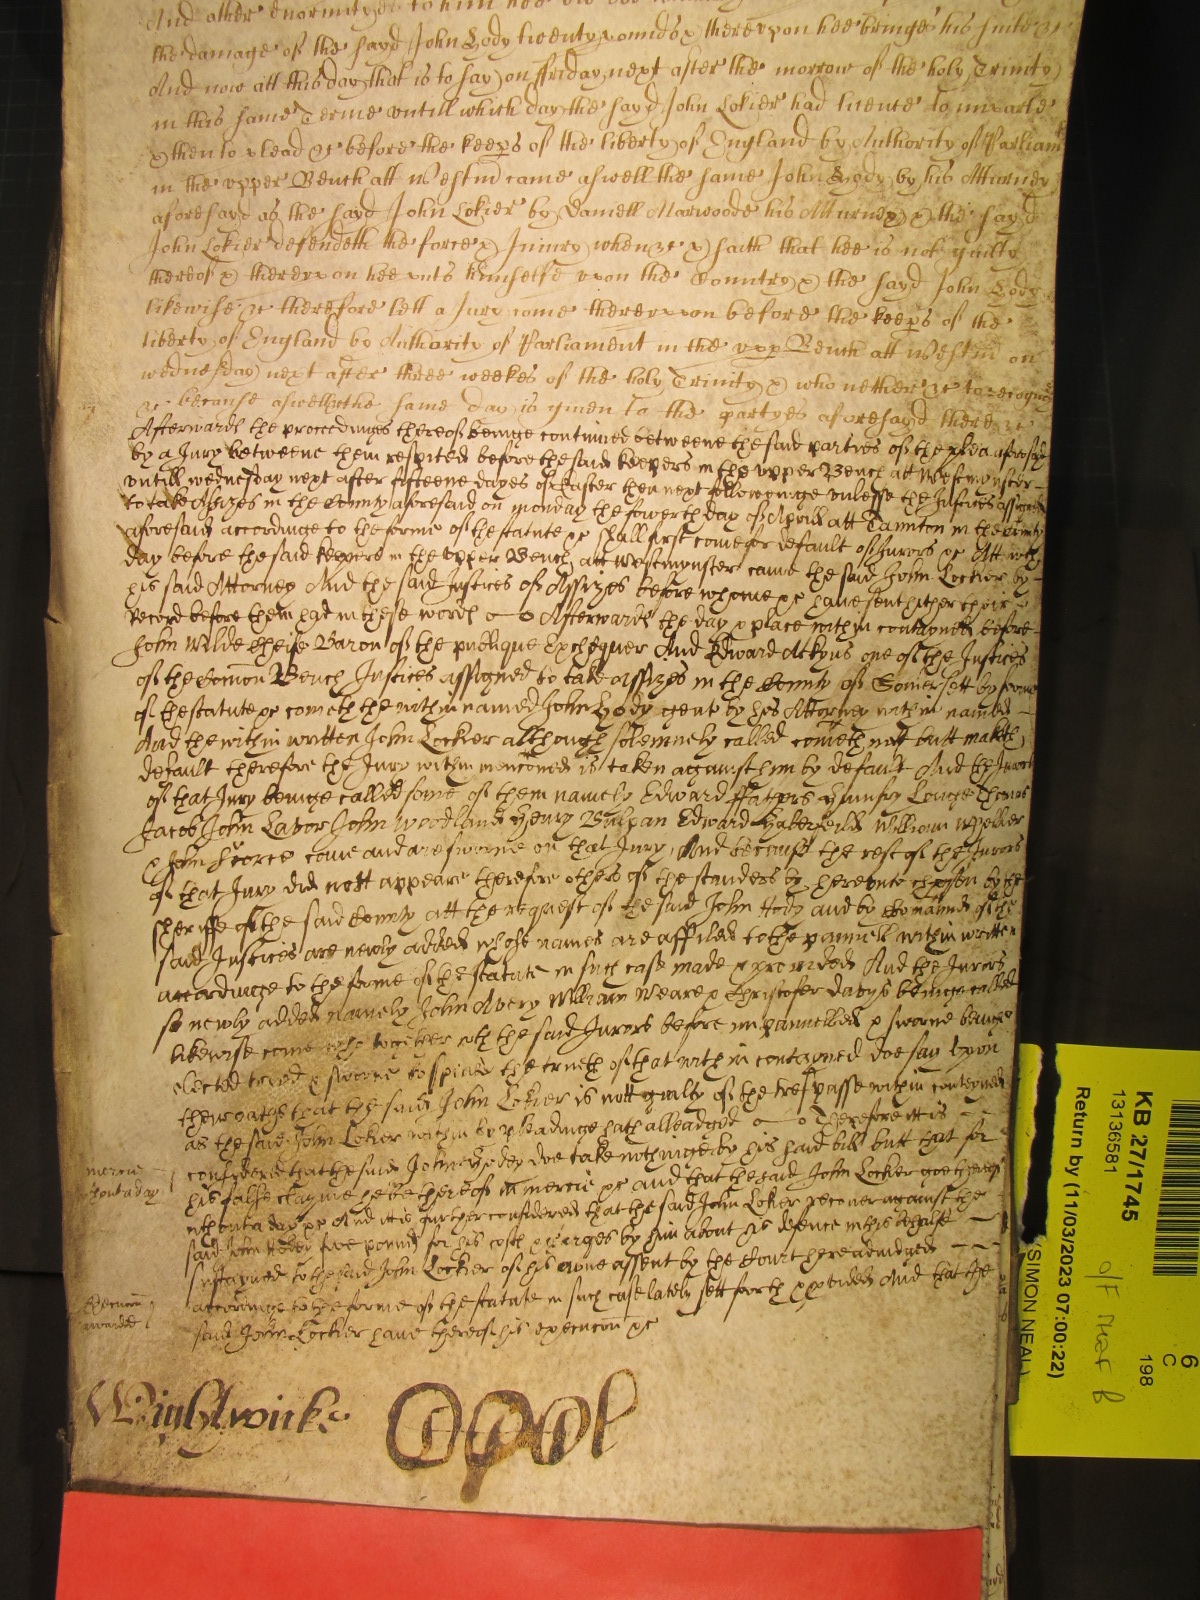 And other enormityes to him hee did
the damage of the sayd John Hody twenty pounds & thereupon hee bringes his suite &c
And now att this day (that is to say) on ffriday next after the morrow of the holy Trinity
in this same Terme untill which day the sayd John Lokier had licence to imparle
& then to plead &c before the keeps of the liberty of England by Authority of Parliamt
in the upper Bench att Westm came aswell the same John Hody by his Atturney
aforesayd as the sayd John Lokier by Daniell Marwoode his Atturney & the sayd
John Lokier defendeth the force & Iniury when &c & saith that hee is not guilty
thereof & thereupon hee puts himselfe upon the Country & the sayd John Hody
likewise &c therefore lett a Jury come thereupon before the keeps of the
liberty of England by Authority of Parliament in the upp Bench att Westm on
wednesday next after three weekes of the holy Trinity & who nether &c to recognize
&c because aswell &c the same day is given to the partyes aforesayd there &c
Afterwards the proceedings thereof beinge continued betweene the said partyes of the plea aforesaid
by a Jury betweene them respited before the said keepers in the upper Bench att Westminster
untill wednesday next after fifteene dayes of Easter then next followeinge unlesse the Justices assigned
to take Assizes in the County aforesaid on monday the fowerth day of Aprill att Taunton in the County
aforesaid accordinge to the forme of the statute &c shall first come for default of Jurors &c Att wch
day before the said keepers in the upper Bench att Westminster came the said John Lockier by
his said Attorney And the said Justices of Assizes before whome &c have sent hither their
Record before them had in these words Afterwards the day & place within contayned before
John Wilde cheife Baron of the publique Exchequer And Edward Atkyns one of the Justices
of the Comon Bench Justices assigned to take Assizes in the County of Somersett by forme
of the statute &c cometh the within named John Hody gent by his Attorney within named
And the within written John Lockier although solemnely called cometh nott butt maketh
default therefore the Jury within menconed is taken against him by default And the Jurors
of that Jury beinge called some of them namely Edward Humfry Longe Thomas
Jacob John Labor John Woodland Henry Bulpan Edward William
& John come and are sworne on that Jury And because the rest of the Jurors
of that Jury did nott appeare therefore others of the standers by hereunto chosen by the
Sheriffe of the said County att the request of the said John Hody and by Comaund of the
said Justices are newly added whose names are affiled to the pannell within written
accordinge to the forme of the statute in such case made & provided And the Jurors
so newly added namely John Avery William Weare & Christofer Davys beinge called
likewise come who together wth the said Jurors before impannelled & sworne beinge
elected tryed & sworne to speake the trueth of that within contayned doe say upon
their oathe that the said John Lokier is nott guilty of the trespasse within conteyned
as the said John Lokier within by pleadinge hath alleadged Therefore itt is
considered that the said John Hody doe take nothinge by his said bill butt that for
his false clayme he be thereof in mercie &c and that the said John Lockier goe thereof
without a day &c And itt is further considered that the said John Lokier recover against the
said John Hody five pounds for his costs & charges by him about his defence in this behalfe
sustayned to the said John Lockier of his owne assent by the Court here adiudged
accordinge to the forme of the statute in such case lately sett forth & provided And that the
said John Lockier have thereof his execucon &c
mercie
without a day
Execucon
awarded
Wightwicke
KB 27/1745
13136581
Return by (11/03/2023 07:00:22)
SIMON NEAL
6
C
198